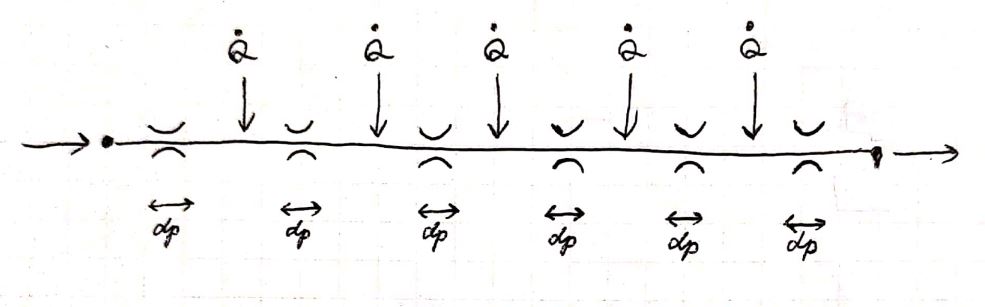 Q̇ Q̇ Q̇ Q̇ Q̇
dp dp dp dp dp dp